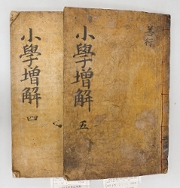 小學增解
五
小學增解
四